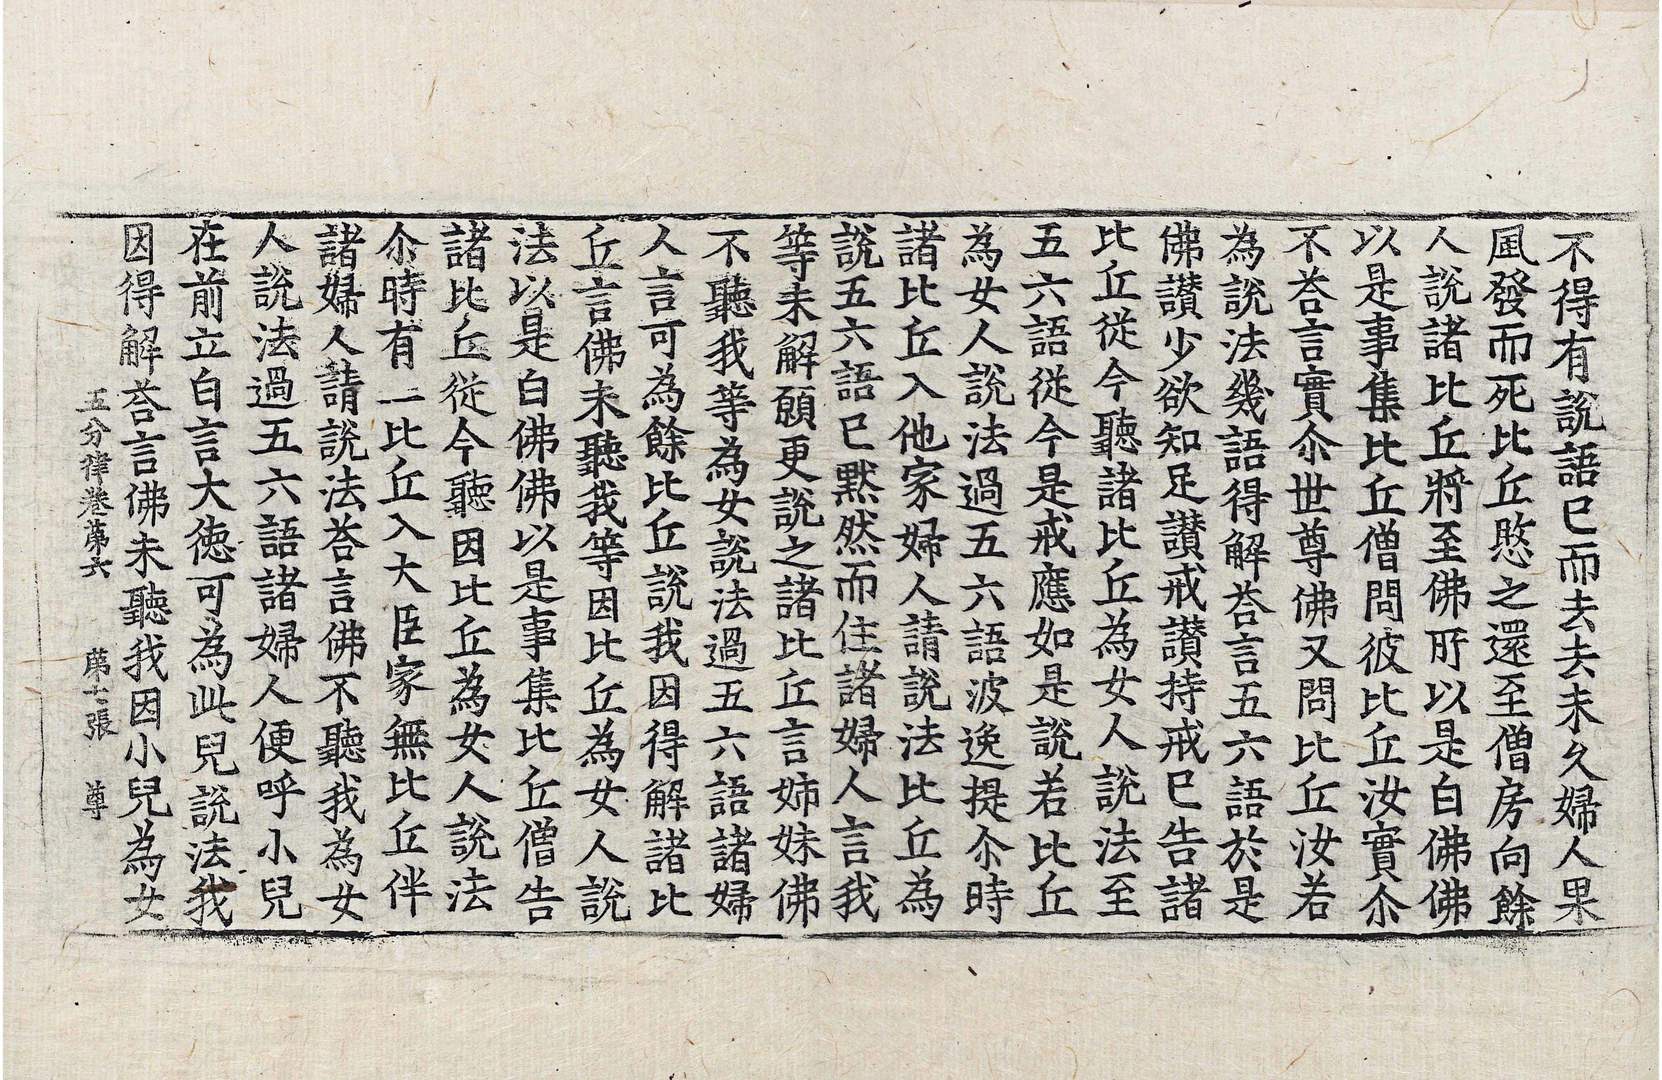 不得有說語已而去去未久婦人果
風發而死比丘愍之還至僧房向餘
人說諸比丘將至佛所以是白佛佛
以是事集比丘僧問彼比丘汝實尒
不荅言實尒世尊佛又問比丘汝若
為說法幾語得解荅言五六語於是
佛讃少欲知足讃戒讃持戒已告諸
比丘從今聽諸比丘為女人說法至
五六語從今是戒應如是說若比丘
為女人說法過五六語波逸提尒時
諸比丘入他家婦人請說法比丘為
說五六語已默然而住諸婦人言我
等未解願更說之諸比丘言姉妹佛
不聽我等為女說法過五六語諸婦
人言可為餘比丘說我因得解諸比
丘言佛未聽我等因比丘為女人說
法以是白佛佛以是事集比丘僧告
諸比丘從今聽因比丘為女人說法
尒時有一比丘入大臣家無比丘伴
諸婦人請說法荅言佛不聽我為女
人說法過五六語諸婦人便呼小兒
在前立白言大徳可為此兒說法我
因得解荅言佛未聽我因小兒為女
五分律卷苐六 苐十張 尊